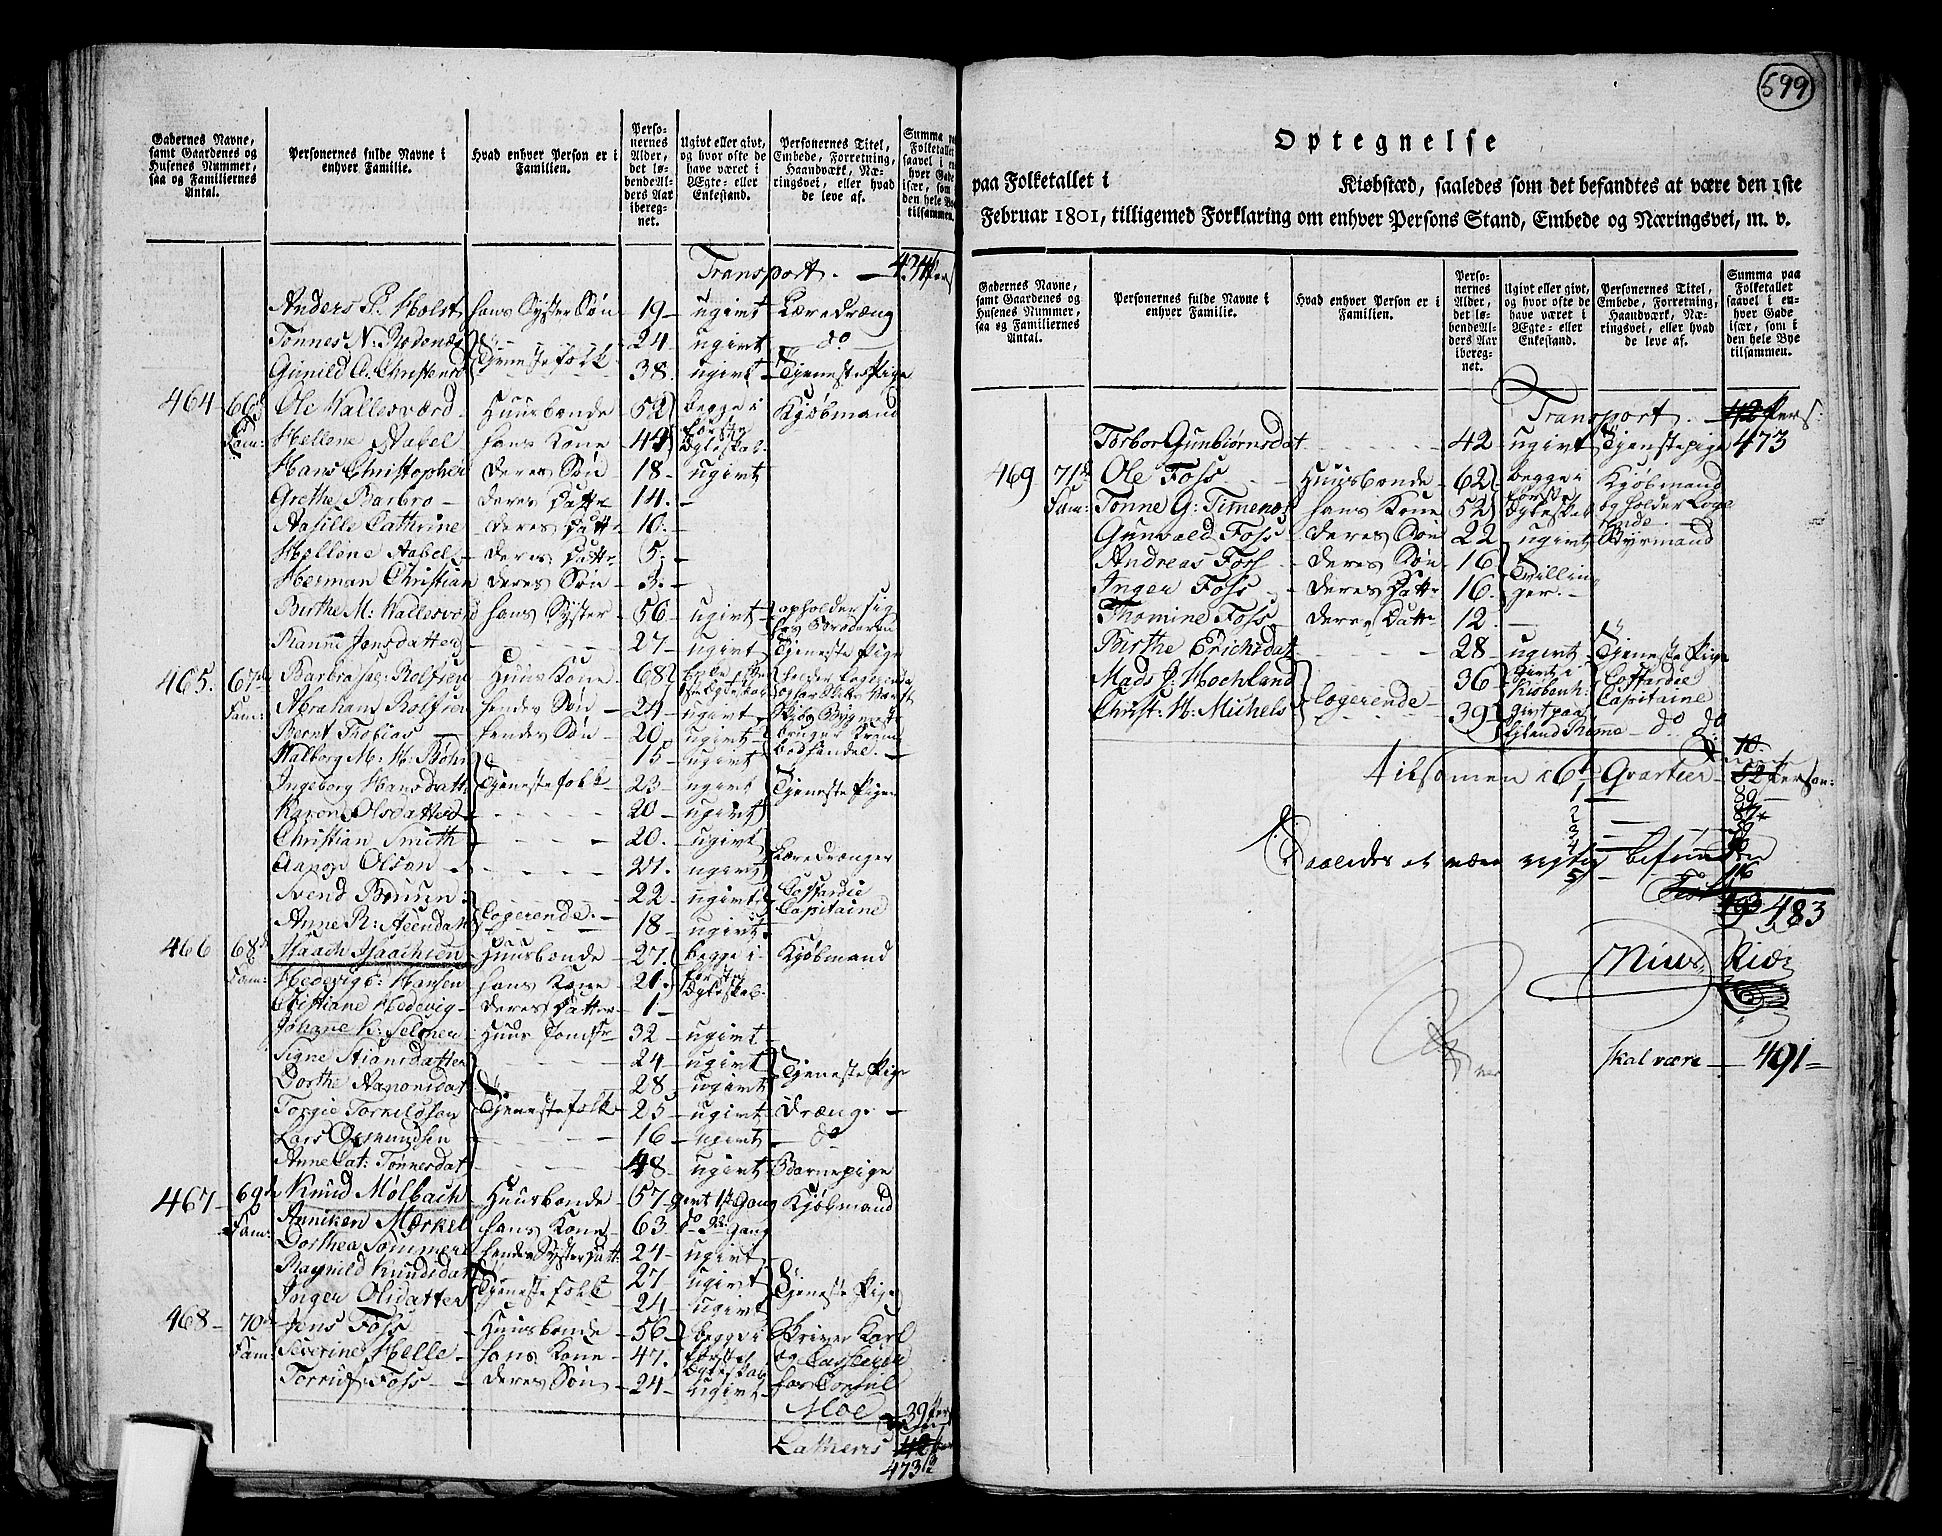 Gadernes Navne, samt Gaardenes og Husenes Nummer, saa og Familiernes Antal.
Personernes fulde Navne i enhver Familie.
Hvad enhver Person er i Familien.
Personernes Alder, det løbendeAlders Aar iberegnet.
Ugivt eller givt, og hvor ofte de have været i Ægte- eller Enkestand.
Personernes Titel, Embede, Forretning, Haandværk, Næringsvej, eller hvad de leve af.
Summa paa Folketallet saavel i enhver Gade især, som i den hele Bye tilsammen.
Transport. — 434 Pers
Anders P. Holst hans Syster Søn 19 — ugivt Læredræng
Tønnes N: 24 — ugivt — do
Gunild C. Christensd Tjenestefolk 38. ugivt — Tjeneste Pige
464 66d Fam: Ole Wallesværd — Huusbonde 52 begge i Kjøbmand
Hellene Aabel hans Kone 44 første Ægteskab
Hans Christopher deres Søn 18 — ugivt
Grethe Barbro — deres Datter 14. —
Aasille Cathrine deres Datt 10. —
Hellene Aabel — deres Datt 5. —
Herman Christian deres Søn 3. —
Birthe M: Wallesværd hans Syster 56 ugivt opholder sig hos Broderen
Jensdatter 27 ugivt Tjeneste Pige
465. 67de Fam: Rolfsen Huus Kone 68
Abraham Rolfsen hendes Søn — 24 — ugivt
Bernt Tobias — hendes Søn 20 ugivt
Walborg M: M: 15 ugivt
Ingeborg Hansdatt: Tjenestefolk 23 ugivt Tjeneste Piger
Karen Olsdatter 20 — ugivt
Christian Smith 20. ugivt
Aanon Olson — 21. ugivt Læredrænger
Svend 22 ugivt Coffardie Capitaine
Anne R: Logerende. — 18 — ugivt
466 68d Fam: Isaach Isaachsen Huusbonde 27. begge i Kjøbmand
Hedevig E: Hansen hans Kone 21. første Ægteskab
Christiane Hedevig — deres Datter — 1 —
Johane K: Selmer Huus Jomfr 32 — ugivt
Signe Stiansdatter 24 — ugivt Tjeneste Pige
Dorthe Aanonsdat: 28 — ugivt
Torgie Torkildsen Tjenestefolk 25 — ugivt Dræng. —
Lars Osmundsen 16 — ugivt — do
Anne Cat: Tønnesdat 48 — ugivt Barnepige
467 — 69de Fam: Knud Mølbach Huusbonde 57 — givt 1ste Gang Kjøbmand
Anniken Mørkel hans Kone 63. do 2den Gang
Dorthea Sommer hendes Systerdatt: 24 — ugivt
Ragnild Knudsdat 27 ugivt
Inger Olsdatter Tjenestefolk 24 — ugivt Tjeneste Pige
468 — 70de Fam: Jens Foss Huusbonde — 56 — begge i Skriver Karl
Severine Helle — hans Kone — 47. første Ægteskab og Casserer
Foss — deres Søn — 24 — ugivt — for Consul Moe
39 Pers
Lateris 42
473
599
Optegnelse
paa Folketallet i Kiøbstæd, saaledes som det befandtes at være den 1ste
Februar 1801, tilligemed Forklaring om enhver Persons Stand, Embede og Næringsvei, m. v.
Gadernes Navne, samt Gaardenes og Husenes Nummer, saa og Familiernes Antal.
Personernes fulde Navne i enhver Familie.
Hvad enhver Person er i Familien.
Personernes Alder, det løbendeAlders Aar iberegnet.
Ugivt eller givt, og hvor ofte de have været i Ægte- eller Enkestand.
Personernes Titel, Embede, Forretning, Haandværk, Næringsvej, eller hvad de leve af.
Summa paa Folketallet saavel i enhver Gade især, som i den hele Bye tilsammen.
Transport. — 42 Pers:
Torbor Gunbiørnsdat 42 — ugivt Tjenestepige 473
469 71de Fam: Ole Foss Huusbonde — 62 begge i Kjøbmand
Tonne G: Timenes hans Kone 52 første Ægteskab og holder Logerende
Gunvald Foss — deres Søn 22 — ugivt Styrmand
Andreas Foss — deres Søn 16 Tvillinger. —
Inger Foss — deres Datt 16.
Thomine Foss — deres Datt 12. —
Birthe Erichsdat 28 — ugivt Tjeneste Pige
Mads J: Hochland Logerende — 36 givt i Kiøbenh: Coffardie Capitaine
Christ: H: Michels 39 givt paa do do
Tilsamen i 6te Qvarteer — 52 Person:
1 — 89
2
3
4
5 — 116
Saaledes at være rigtig befunden
483
skal være — 491 =